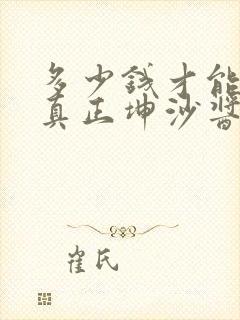 多少钱才能
真正坤沙酱
崔氏